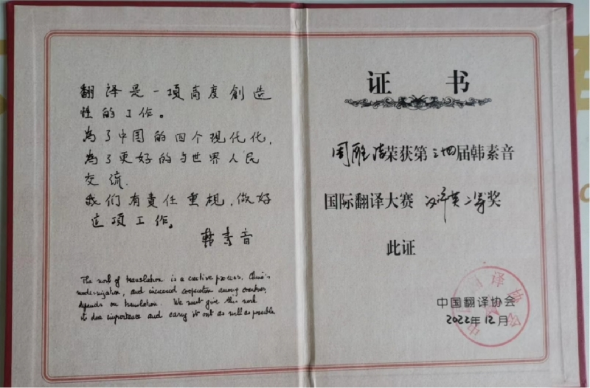 翻译是一项高度创造
性的工作。
为了中国的四个现代化,
为了更好的与世界人民
交流.
我们有责任重视,做好
这项工作。
韩素音
The work of translation is a creative process. China's
modernization, and increased cooperation among countries,
depends on translation. We must give this work
its due importance and carry it out as well as possible
证 书
周 荣获第三四届韩素音
国际翻译大赛 汉译英二等奖
此证
中国翻译协会
2022年12月